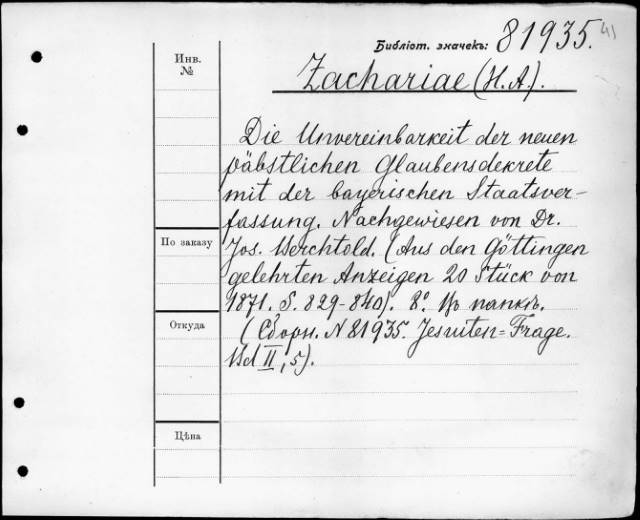 Библіот. значекъ: 81935. 41
Инв. №
Zachariae (H. A.).
Die Unvereinbarkeit der neuen
päbstlichen Glaubensdekrete
mit der bayerischen Staatsver-
fassung. Nachgewiesen von Dr.
По заказу
Jos. Berchtold. (Aus den Göttingen
gelehrten Anzeigen 20 Stück von
1871. S. 829-840). 8°. Въ папкѣ.
Откуда
(Сборн. N 81935. Jesuiten-Frage.
Bd II, 5).
Цѣна